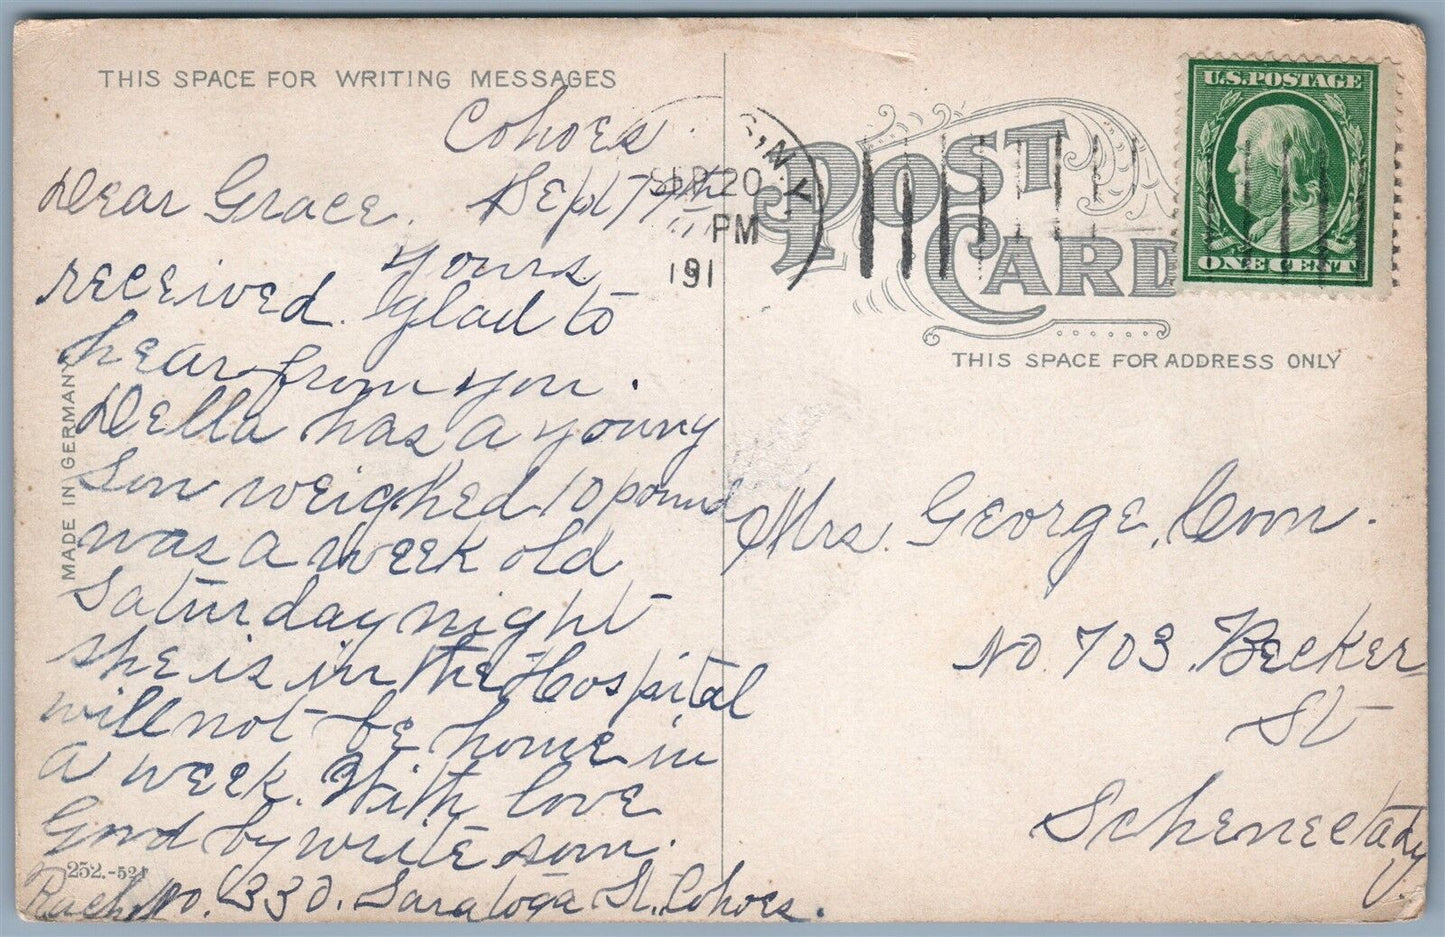 THIS SPACE FOR WRITING MESSAGES
Cohoes
Dear Grace. Sept
Yours
received. glad to
hear from you.
Della has a young
Son weighed 10 pound
was a week old
Saturday night
she is in the Hospital
will not be home in
a week. With love
Good by write soon.
No. 330. Saratoga St. Cohoes.
MADE IN GERMANY
252.-521
N.Y.
SEP 20
PM
191
POST CARD
U.S. POSTAGE
ONE CENT
THIS SPACE FOR ADDRESS ONLY
Mrs. George. Coon.
No. 703. Becker
St
Schenectady